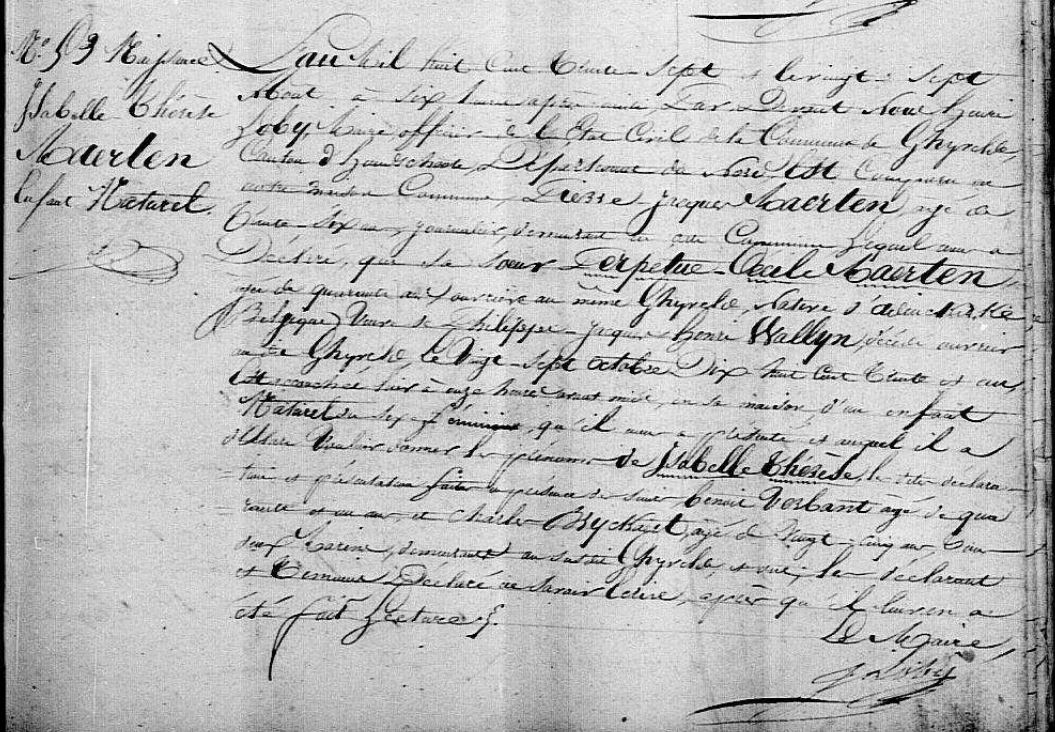 N.° 53 Naissance
Isabelle Thérèse
Maerten
Enfant Naturel.
L'an Mil huit Cent Trente-Sept et le vingt-Sept
Aout, à Six heures après midi Par Devant Nous Henri
Soby, Maire officier de l'Etat Civil de la Commune de Ghyvelde,
Canton d'Hondschoote, Département du Nord, Est Comparu en
notre maison Commune, Pierre Jacques Maerten, agé de
Trente-Six ans, journalier, demeurant en cette Commune Lequel nous a
Déclaré, que sa Soeur Perpetue-Cecile Maerten
agée de quarante ans, ouvrière au même Ghyvelde, Native d'adinckerke
(Belgique) Veuve de Philippe-Jacques Henri Wallyn décédé ouvrier
audit Ghyveld, le Vingt-Sept octobre Dix huit Cent Trente et un,
Est accouchée hier à onze heures avant midi, en sa maison d'un enfant
Naturel du Sexe féminin, qu'il nous a présenté et auquel il a
déclaré Vouloir donner les prénoms de Isabelle Thérèse, les dites déclara-
tion et présentation faites en présence de Benoit Verbant agé de qua
rante et un ans, et Charles Ryckaet, agé de Vingt-cinq ans, tous
deux, demeurant au susdit Ghyvelde, et les déclarant
et Témoins Déclaré ne Savoir Ecrire, après qu'il leur en a
été fait Lecture.
Le Maire,
Soby